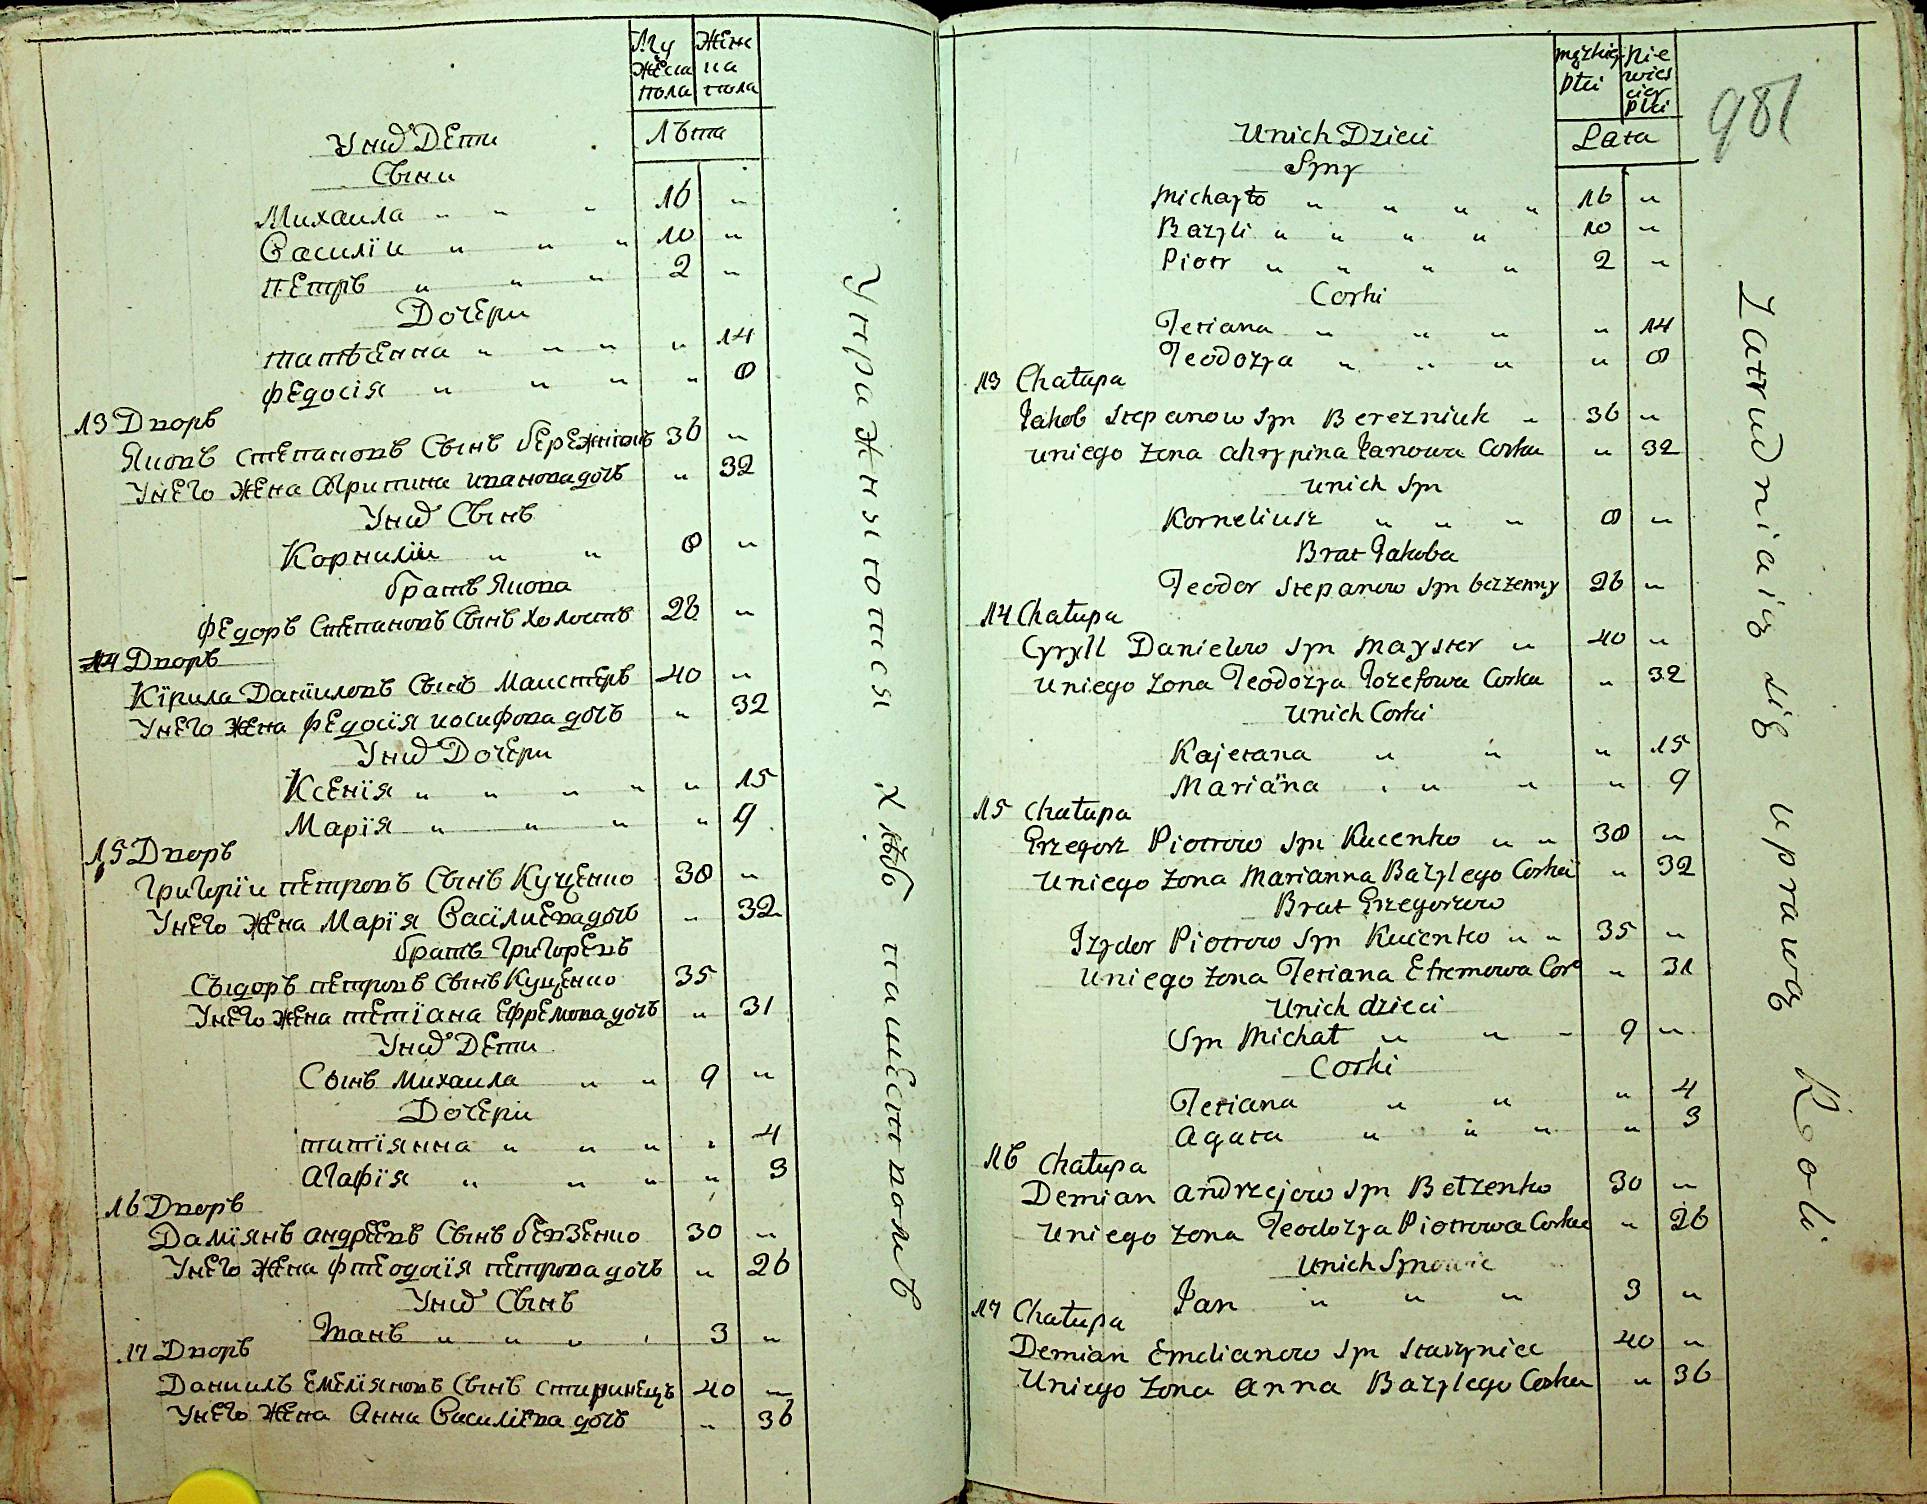 Му Женс
жеска ка
пола пола
Лѣта
Уних Дети
Сыни
Михаила " " " 16 "
Василіи " " " 10 "
петръ " " " 2 "
Дочери
татѣанна " " " " 14
федосія " " " " 8
13 Дворъ
Яковъ степановъ Сынъ бережнюкъ 36 "
Унего жена Агрипина ивановадочь " 32
Уних Сынъ
Корнилїи " " 8 "
братъ Якова
федоръ Степановъ Сынъ холостъ 26 "
14 Дворъ
Кїрила Данїиловъ Сынъ Маистеръ 40 "
Унего жена федосїя иосифова дочь " 32
Уних Дочери
Ксенїя " " " " " 15
Марїя " " " " 9
15 Дворъ
григорїи петровъ Сынъ Куценко 38 "
Унего жена Марїя Василиевадочь " 32
братъ григоревъ
Сыдоръ петровъ Сынъ Куценко 35
Унего жена тетїана Ефремовадочь " 31
Уних Дети
Сынъ михаила " " 9 "
Дочери
татїянна " " " " 4
Агафїя " " " " 3
16 Дворъ
Дамїянъ андреевъ Сынъ бевзенко 30 "
Унего жена фтеодосїя петровадочь " 26
Уних Сынъ
Iванъ " " " " 3 "
17 Дворъ
Даниилъ емелїяновъ Сынъ старинецъ 40 "
Унего жена Анна Василїева дочь " 36
Упражняютися хлѣбопашествомъ
męzkiej Nie
płci wies
ciey
płci
981
Lata
Unich Dzieci
Syny
Michayło " " " " 16 "
Bazyli " " " " 10 "
Piotr " " " " 2 "
Corki
Tetiana " " " " 14
Teodozya " " " " 8
13 Chałupa
Jakob Stepanow Syn Berezniuk " 36 "
uniego Zona Ahrypina Janowa Corka " 32
unich Syn
Korneliusz " " " 8 "
Brat Jakoba
Teodor Stepanow Syn bezżenny 26 "
14 Chałupa
Cyryll Danielow Syn Mayster " 40 "
uniego Zona Teodozya Jozefowa Corka " 32
Unich Corki
Kajetana " " " 15
Mariäna " " " " 9
15 Chałupa
Grzegorz Piotrow Syn Kucenko " " 38 "
uniego Zona Marianna Bazylego Corka " 32
Brat Grzegorzow
Izydor Piotrow Syn Kucenko " " 35 "
uniego Zona Tetiana Efremowa Cor " 31
Unich dzieci
Syn Michał " " " 9 "
Corki
Tetiana " " " 4
Agata " " " " 3
16 Chałupa
Demian Andrzejow Syn Betzenko 30 "
uniego Zona Teodozya Piotrowa Corka " 26
Unich Synowie
Jan " " " 3 "
17 Chałupa
Demian Emelianow Syn Starzyniec 40 "
Uniego Zona Anna Bazylego Corka " 36
Zatrudniaią się uprawą Roli